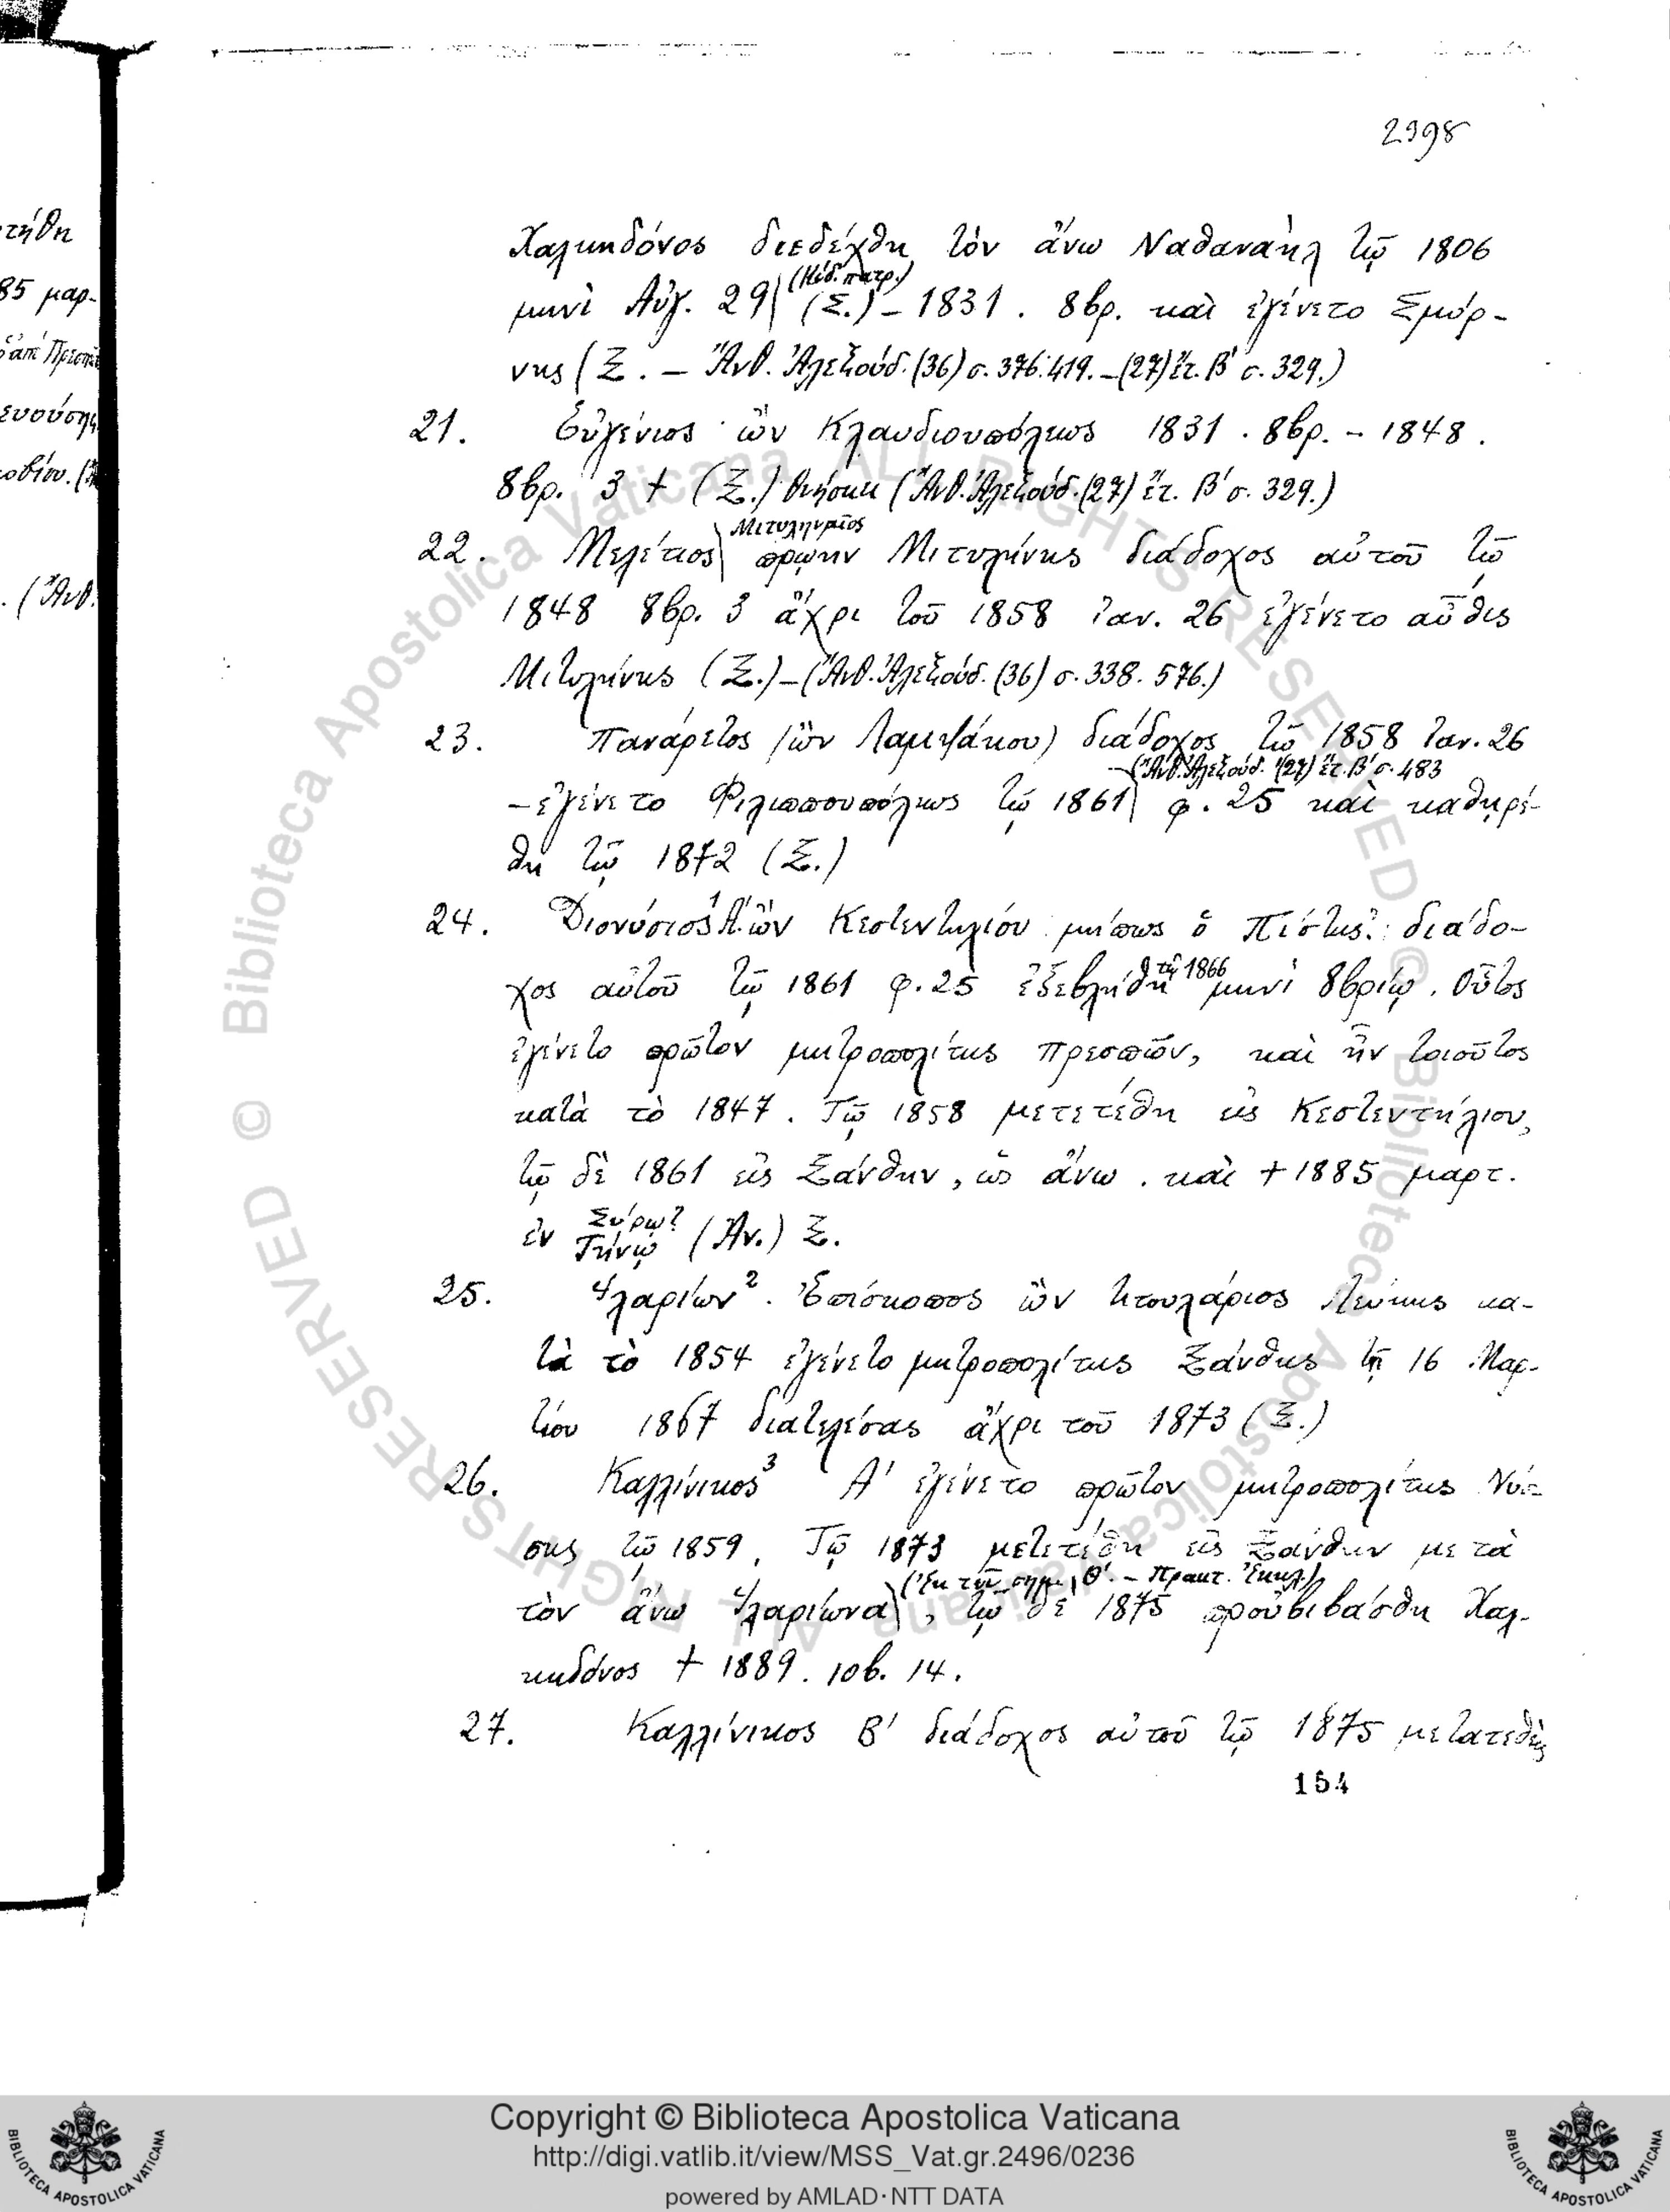 τήθη
85 μαρ-
ευούσης
. (Ἄνθ.
2998
Χαλκηδόνος διεδέχθη τὸν ἄνω Ναθαναὴλ τῷ 1806
μηνὶ Αὐγ. 29 (Κώδ. πατρ.) (Ξ.) – 1831 . 8βρ. καὶ ἐγένετο Σμύρ-
νης (Ξ. – Ἄνθ. Ἀλεξούδ. (36) σ. 376. 419. – (27) ἔτ. Β' σ. 329.)
21. Εὐγένιος ὢν Κλαυδιουπόλεως 1831 . 8βρ. – 1848 .
8βρ. 3 + (Ξ.) θνήσκει (Ἄνθ. Ἀλεξούδ. (27) ἔτ. Β' σ. 329.)
22. Μελέτιος Μιτυληναῖος πρῴην Μιτυλήνης διάδοχος αὐτοῦ τῷ
1848 8βρ. 3 ἄχρι τοῦ 1858 ἰαν. 26 ἐγένετο αὖθις
Μιτυλήνης (Ξ.) – (Ἄνθ. Ἀλεξούδ. (36) σ. 338. 576.)
23. Πανάρετος (ὢν Λαμψάκου) διάδοχος τῷ 1858 Ἰαν. 26
– ἐγένετο Φιλιππουπόλεως τῷ 1861 – (Ἄνθ. Ἀλεξούδ. (27) ἔτ. Β' σ. 483 φ. 25 καὶ καθῃρέ-
θη τῷ 1872 (Ξ.)
24. Διονύσιος¹ Α'. ὢν Κεστεντηλίου μήπως ὁ Πίστης; διάδο-
χος αὐτοῦ τῷ 1861 φ. 25 ἐξεβλήθη τῷ 1866 μηνὶ 8βρίῳ . Οὗτος
ἐγένετο πρῶτον μητροπολίτης Πρεσπῶν, καὶ ἦν τοιοῦτος
κατὰ τὸ 1847 . Τῷ 1858 μετετέθη εἰς Κεστεντήλιον,
τῷ δὲ 1861 εἰς Ξάνθην, ὡς ἄνω . καὶ + 1885 μαρτ.
ἐν Σύρῳ? Τήνῳ (Ἀν.) Ξ.
25. Ἱλαρίων² . Ἐπίσκοπος ὢν τιτουλάριος Λεύκης κα-
τὰ τὸ 1854 ἐγένετο μητροπολίτης Ξάνθης τῇ 16 Μαρ-
τίου 1867 διατελέσας ἄχρι τοῦ 1873 (Ξ.)
26. Καλλίνικος³ Α' ἐγένετο πρῶτον μητροπολίτης Νύσ-
σης τῷ 1859 . Τῷ 1873 μετετέθη εἰς Ξάνθην μετὰ
τὸν ἄνω Ἱλαρίωνα (Ἐκ τῶν σημ. Θ'. – Πρακτ. Ἐκκλ.) , τῷ δὲ 1875 προὐβιβάσθη Χαλ-
κηδόνος + 1889 . ιοβ. 14 .
27. Καλλίνικος Β' διάδοχος αὐτοῦ τῷ 1875 μετατεθεὶς
154
© Biblioteca Apostolica Vaticana ALL RIGHTS RESERVED
© Biblioteca Apostolica Vaticana ALL RIGHTS RESERVED
Copyright © Biblioteca Apostolica Vaticana
http://digi.vatlib.it/view/MSS_Vat.gr.2496/0236
powered by AMLAD·NTT DATA
BIBLIOTECA APOSTOLICA VATICANA
BIBLIOTECA APOSTOLICA VATICANA